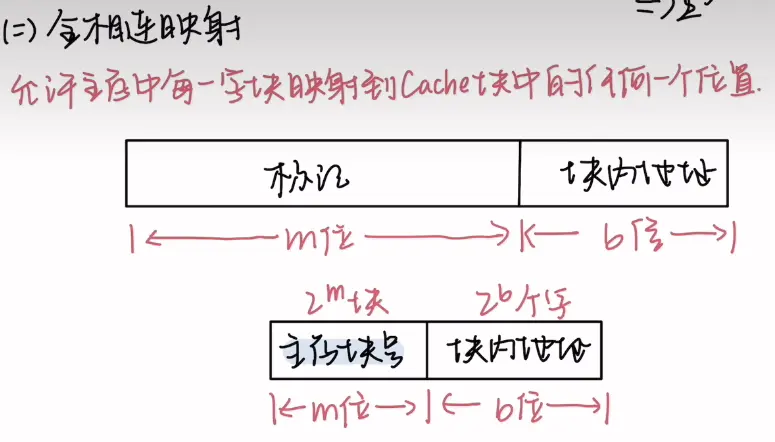 (二) 全相连映射
允许主存中每一字块映射到Cache块中的任何一个位置.
标记 块内地址
m位 b位
2^m块 2^b个字
主存块号 块内地址
m位 b位